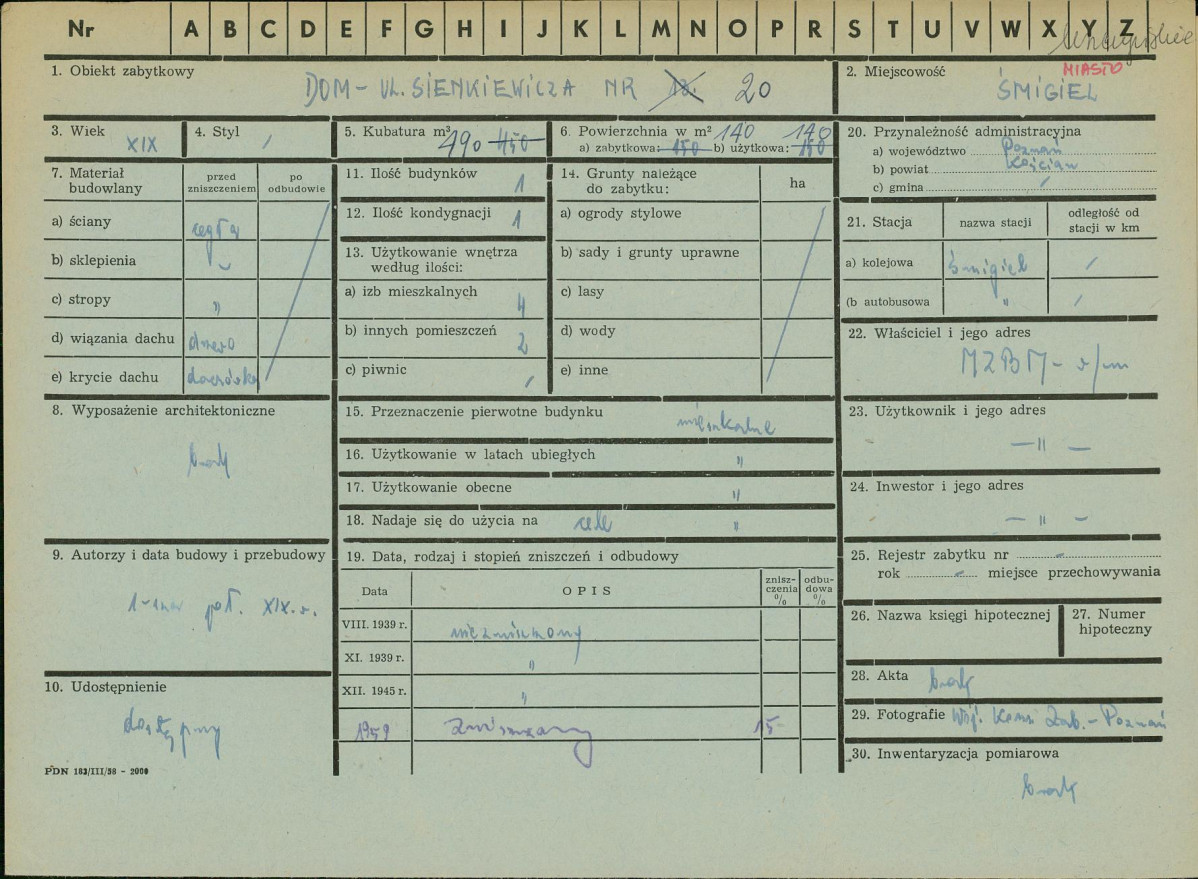 Nr A B C D E F G H I J K L M N O P R S T U V W X Y Z
1. Obiekt zabytkowy DOM - UL. SIENKIEWICZA NR 20
2. Miejscowość MIASTO
ŚMIGIEL
3. Wiek XIX
4. Styl /
5. Kubatura m³ 490 450
6. Powierzchnia w m² 140 140
a) zabytkowa: 150 b) użytkowa: 150
7. Materiał budowlany
przed zniszczeniem
po odbudowie
a) ściany cegła
b) sklepienia
c) stropy "
d) wiązania dachu drewno
e) krycie dachu dachówka
8. Wyposażenie architektoniczne
brak
9. Autorzy i data budowy i przebudowy
poł. XIX w.
10. Udostępnienie
dostępny
PDN 183/III/58 - 2000
11. Ilość budynków 1
12. Ilość kondygnacji 1
13. Użytkowanie wnętrza
według ilości:
a) izb mieszkalnych 4
b) innych pomieszczeń 2
c) piwnic /
14. Grunty należące
do zabytku:
ha
a) ogrody stylowe
b) sady i grunty uprawne
c) lasy
d) wody
e) inne
15. Przeznaczenie pierwotne budynku mieszkalne
16. Użytkowanie w latach ubiegłych "
17. Użytkowanie obecne "
18. Nadaje się do użycia na cele "
19. Data, rodzaj i stopień zniszczeń i odbudowy
Data
OPIS
znisz-
czenia
%
odbu-
dowa
%
VIII. 1939 r. niezniszczony
XI. 1939 r. "
XII. 1945 r. "
1959 zniszczony 15
20. Przynależność administracyjna
a) województwo Poznań
b) powiat Kościan
c) gmina /
21. Stacja
nazwa stacji
odległość od
stacji w km
a) kolejowa Śmigiel /
(b autobusowa " /
22. Właściciel i jego adres
MZBM - w/m
23. Użytkownik i jego adres
— " —
24. Inwestor i jego adres
— " —
25. Rejestr zabytku nr -
rok - miejsce przechowywania
26. Nazwa księgi hipotecznej
27. Numer
hipoteczny
28. Akta brak
29. Fotografie Woj. Kons. Zab. - Poznań
30. Inwentaryzacja pomiarowa
brak